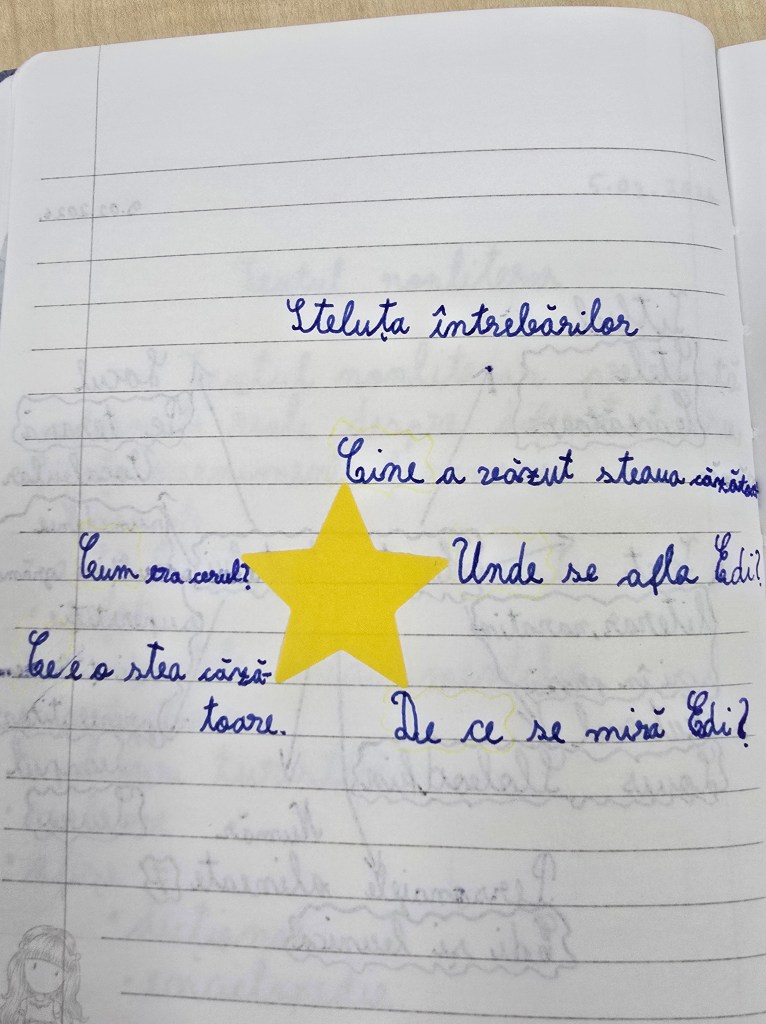 Steluța întrebărilor
Cine a văzut steaua căzătoare
Cum era cerul?
Unde se afla Edi?
Ce e o stea căză-
toare.
De ce se miră Edi?